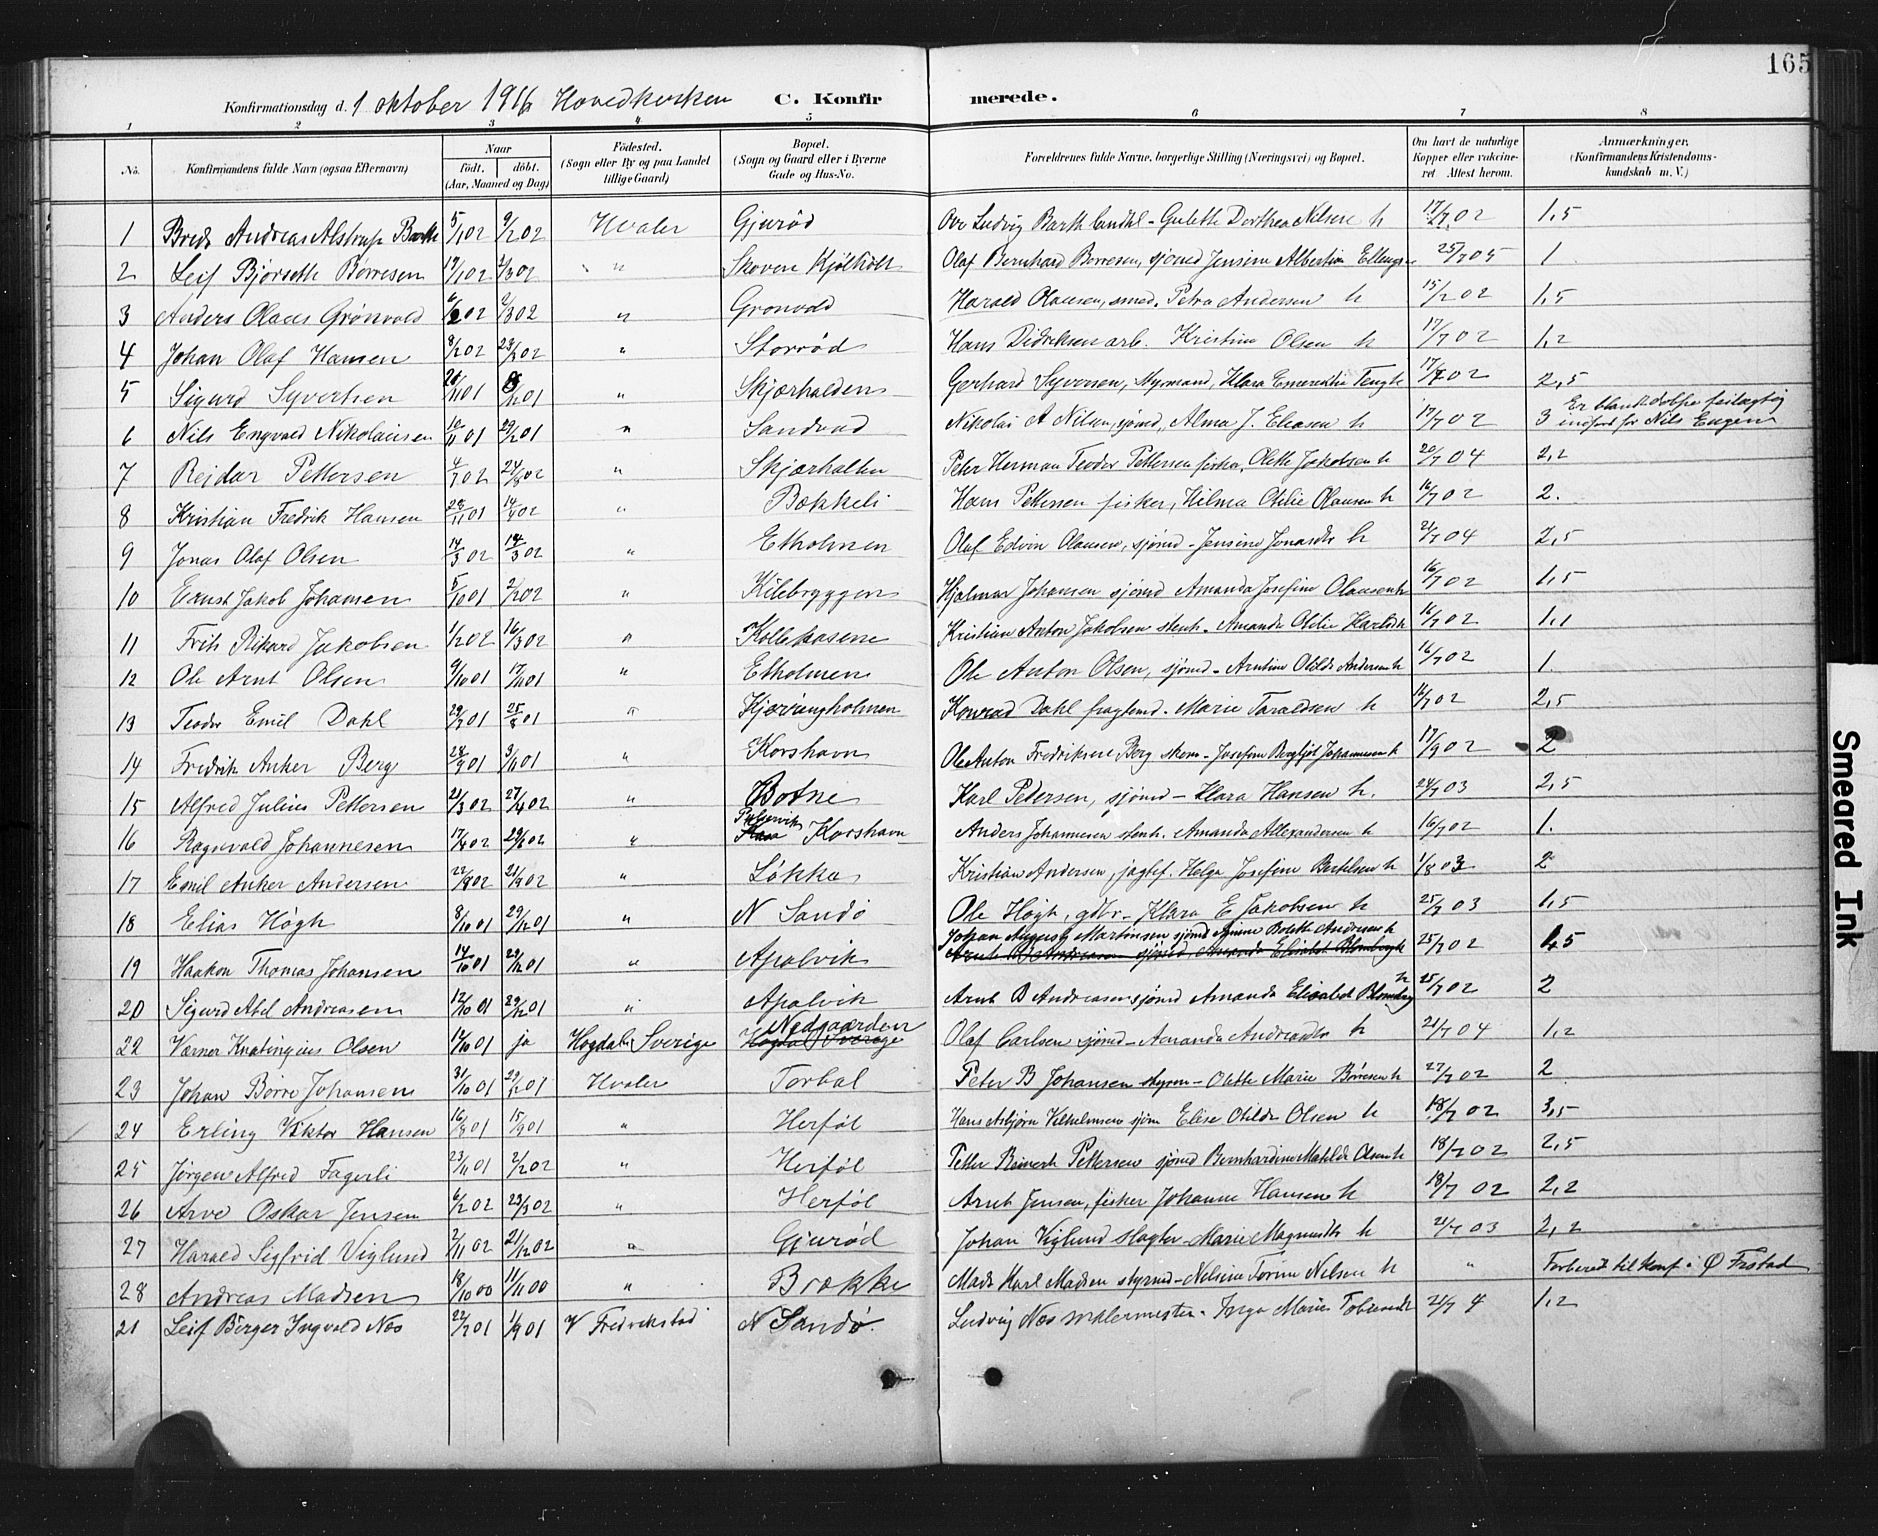 165
Konfirmationsdag d. 1 oktober 1916 Hovedkirken C. Konfirmerede.
1 2 3 4 5 6 7 8
No. Konfirmandens fulde Navn (ogsaa Efternavn) Naar født. døbt. (Aar, Maaned og Dag) Fødested. (Sogn eller By og paa Landet tillige Gaard) Bopæl. (Sogn og Gaard eller i Byerne Gade og Hus-No. Forældrenes fulde Navne, borgerlige Stilling (Næringsvei) og Bopæl. Om havt de naturlige Kopper eller vaccineret Attest herom. Anmærkninger. (Konfirmandens Kristendomskundskab m. V.)
1 Brede Andreas Alstrup 5/1 02 9/2 02 Hvaler Gjurød Ove Ludvig Barth - Gulette Dorthea Nilsen h 17/7 02 1,5
2 Leif Bjørseth Børresen 17/1 02 2/3 02 " Skoven Kjølholt Olaf Bernhard Børresen, sjømd Jensine Albertine 25/7 05 1
3 Anders Olaus Grønvold 6/2 02 2/3 02 " Gronvold Harald Olausen, smed. Petra Andersen h 15/2 02 1,5
4 Johan Olaf Hansen 8/2 02 23/3 02 " Storrød Hans Didriksen arb. Kristine Olsen h 17/7 02 1,2
5 Sigurd Syversen 20/11 01 01 " Skjærhalden Gerhard Syversen, styrmand, Klara 17/7 02 2,5
6 Nils Engvald Nikolaisen 10/11 01 29/12 01 " Sandvad Nikolai A Nilsen, sjømd, Alma J. Eliasen h 17/7 02 3 Er blank feilagtig indført for Nils Eugen
7 Reidar Pettersen 4/7 02 24/8 02 " Skjærhallen Peter Herman Teodor Pettersen fisker, Olette Jakobsen h 20/7 04 2,2
8 Kristian Fredrik Hansen 28/11 01 02 " Bækkeli Hans Pettersen fisker, Hilma Otilie Olausen h 16/7 02 2.
9 Jonas Olaf Olsen 14/3 02 /3 02 " Etholmen Olaf Edvin Olausen, sjømd - Jensine Jonasdtr h 21/7 04 2,5
10 Ernst Jakob Johansen 5/10 01 2/2 02 " Kilebryggen Hjalmar Johansen sjømd Amanda Josefine Olausen h 16/7 02 1,5
11 Frits Rikard Jakobsen 1/2 02 16/3 02 " Kollehasene Kristian Anton Jakobsen stenh. Amanda Otilie 16/7 02 1,1
12 Ole Arnt Olsen 9/10 01 17/11 01 " Etholmen Ole Anton Olsen, sjømd - Arntine Otilde Andersen h 16/7 02 1.
13 Teodor Emil Dahl 29/7 01 25/8 01 " Kjærringholmen Konrad Dahl fyrglømd. Marie Taraldsen h 16/7 02 2,5
14 Fredrik Anker Berg 28/9 01 3/11 01 " Korshavn Ole Anton Fredriksen Berg skom - Josefine Bergljot Johannesen h 17/9 02 2
15 Alfred Julius Pettersen 21/3 02 27/4 02 " Botne Karl Pedersen, sjømd - Klara Hansen h. 24/7 03 2,5
16 Ragnvald Johannesen 17/4 02 29/6 02 " Korshavn Anders Johannesen stenh. Amanda Allexandersen h 16/7 02 1.
17 Emil Anker Andersen 22/8 02 21/9 02 " Løkka Kristian Andersen, jagtef. Helga Josefine Bertelsen h 1/8 03 2
18 Elias Høgh 8/10 01 29/12 01 " N Sandø Ole Høgh, gdbr - Klara E Jakobsen h 25/7 03 1,5
19 Haakon Thomas Johansen 14/10 01 29/12 01 " Apalvik Johan August Martinsen sjømd Anine Bolette Andersen h 25/7 02 1,5
Arnt B Andreasen sjømd, Amanda Elisabet Blomberg h
20 Sigurd Abel Andreasen 12/10 01 29/12 01 " Apalvik Arnt B Andreasen sjømd Amanda Elisabet Blomberg h 25/7 02 2
22 Værner Knatingius Olsen 14/10 01 ja Høgdal Sverige Nedgaarden Høgdal Sverige Olaf Carlsen sjømd - Amanda Andreasdtr h 21/7 04 1,2
23 Johan Børre Johansen 31/10 01 29/12 01 Hvaler Torbal Peter B Johansen styrm - Olette Marie Børresen h 27/7 02 2
24 Erling Viktor Hansen 16/8 01 15/9 01 " Herføl Hans Asbjørn Vilhelmsen sjøm Elise Otilde Olsen h 18/7 02 3,5
25 Jørgen Alfred Fagerli 23/11 01 2/2 02 " Herføl Petter Reinert Pettersen sjømd Bernhardine Matilde Olsen h 18/7 02 2,5
26 Arve Oskar Jensen 6/2 02 23/3 02 " Herføl Arnt Jensen, fisker Johanne Hansen h 18/7 02 2,2
27 Harald Sigfrid Viglund 2/11 02 21/12 02 " Gjurød Johan Viglund slagter - Marie Magnusdtr h 21/7 03 2,2
28 Andreas Madsen 18/10 00 11/11 00 " Brække Mads Karl Madsen styrmd - Nelsine Torine Nelsen h " Forberedt til konf. i Ø Frstad
21 Leif Birger Ingvald Næs 22/7 01 1/9 01 V Fredrikstad N Sandø. Ludvig Næs malermester - Inga Marie 21/7 4 1,2
Smeared Ink